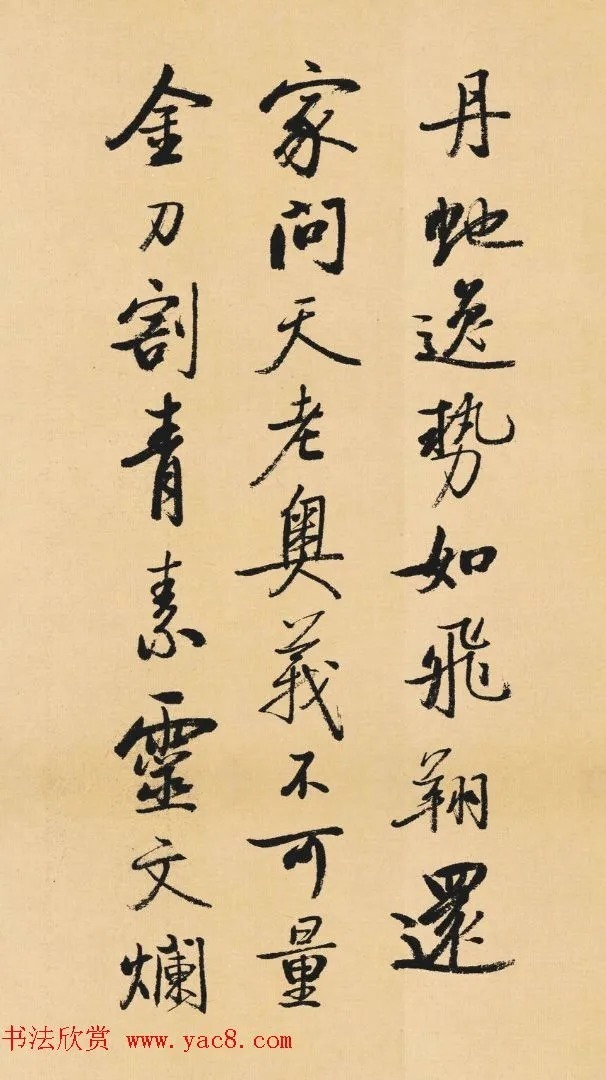 丹虵逸勢如飛翔還
家問天老奥義不可量
金刀割青素靈文爛
书法欣赏 www.yac8.com